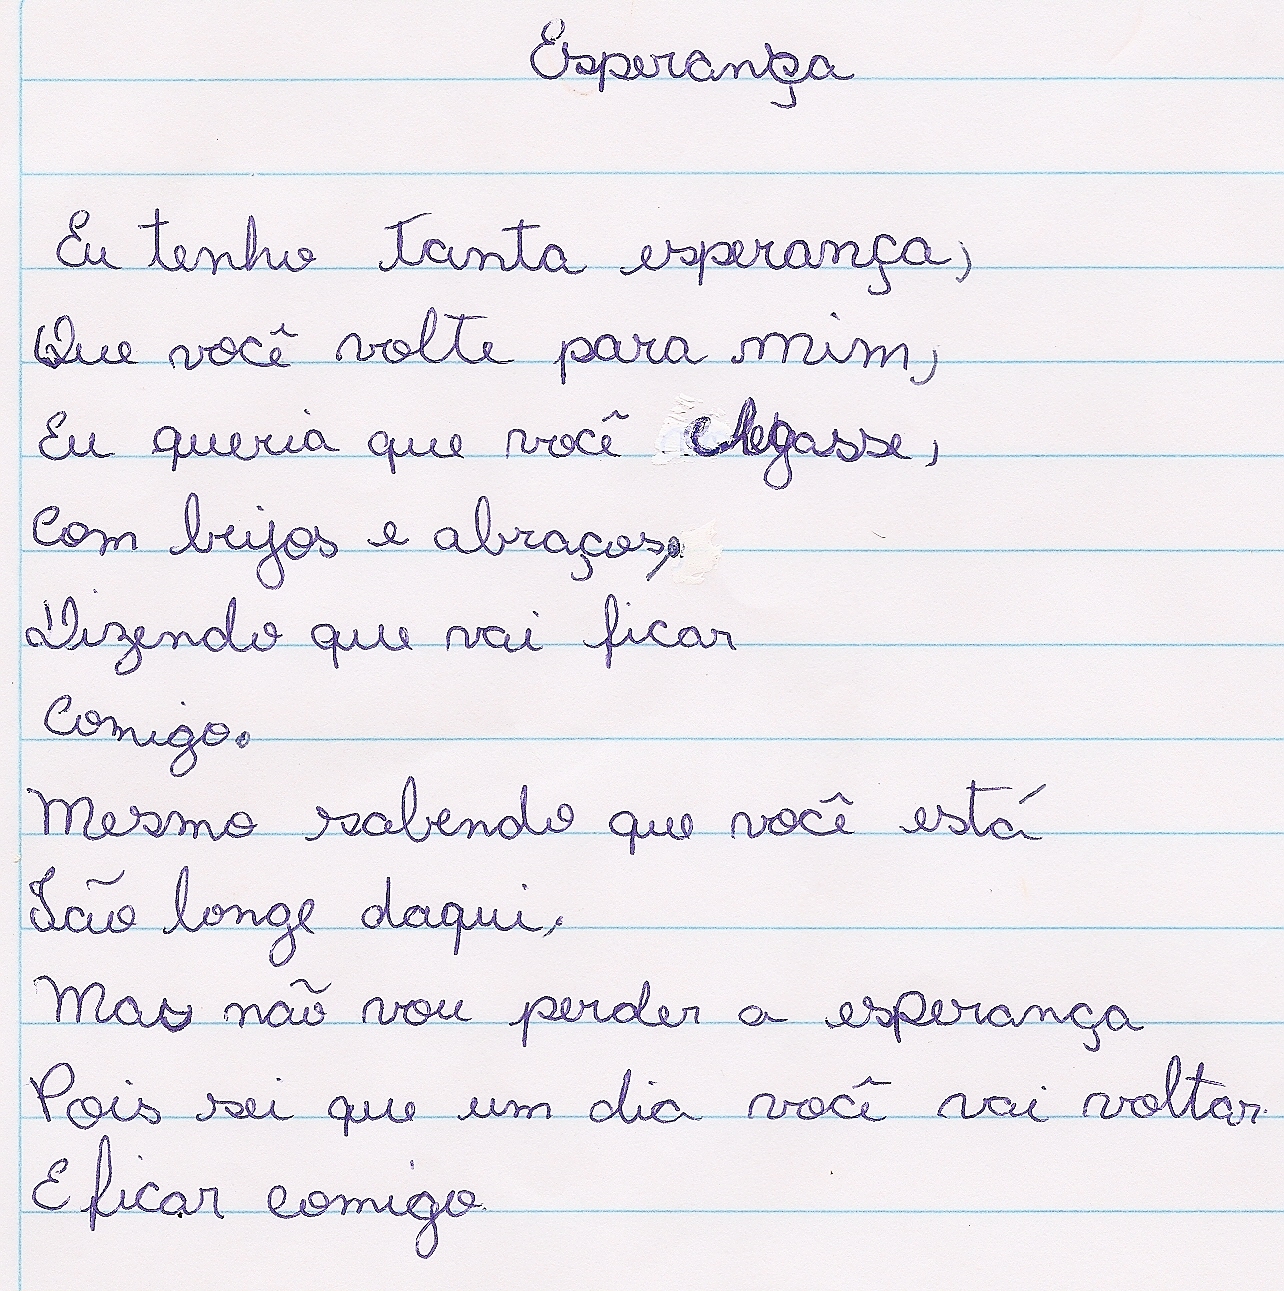 Esperança
Eu tenho tanta esperança,
Que você volte para mim,
Eu queria que você chegasse,
Com beijos e abraços,
Dizendo que vai ficar
Comigo.
Mesmo sabendo que você está
Tão longe daqui,
Mas não vou perder a esperança
Pois sei que um dia você vai voltar
E ficar comigo